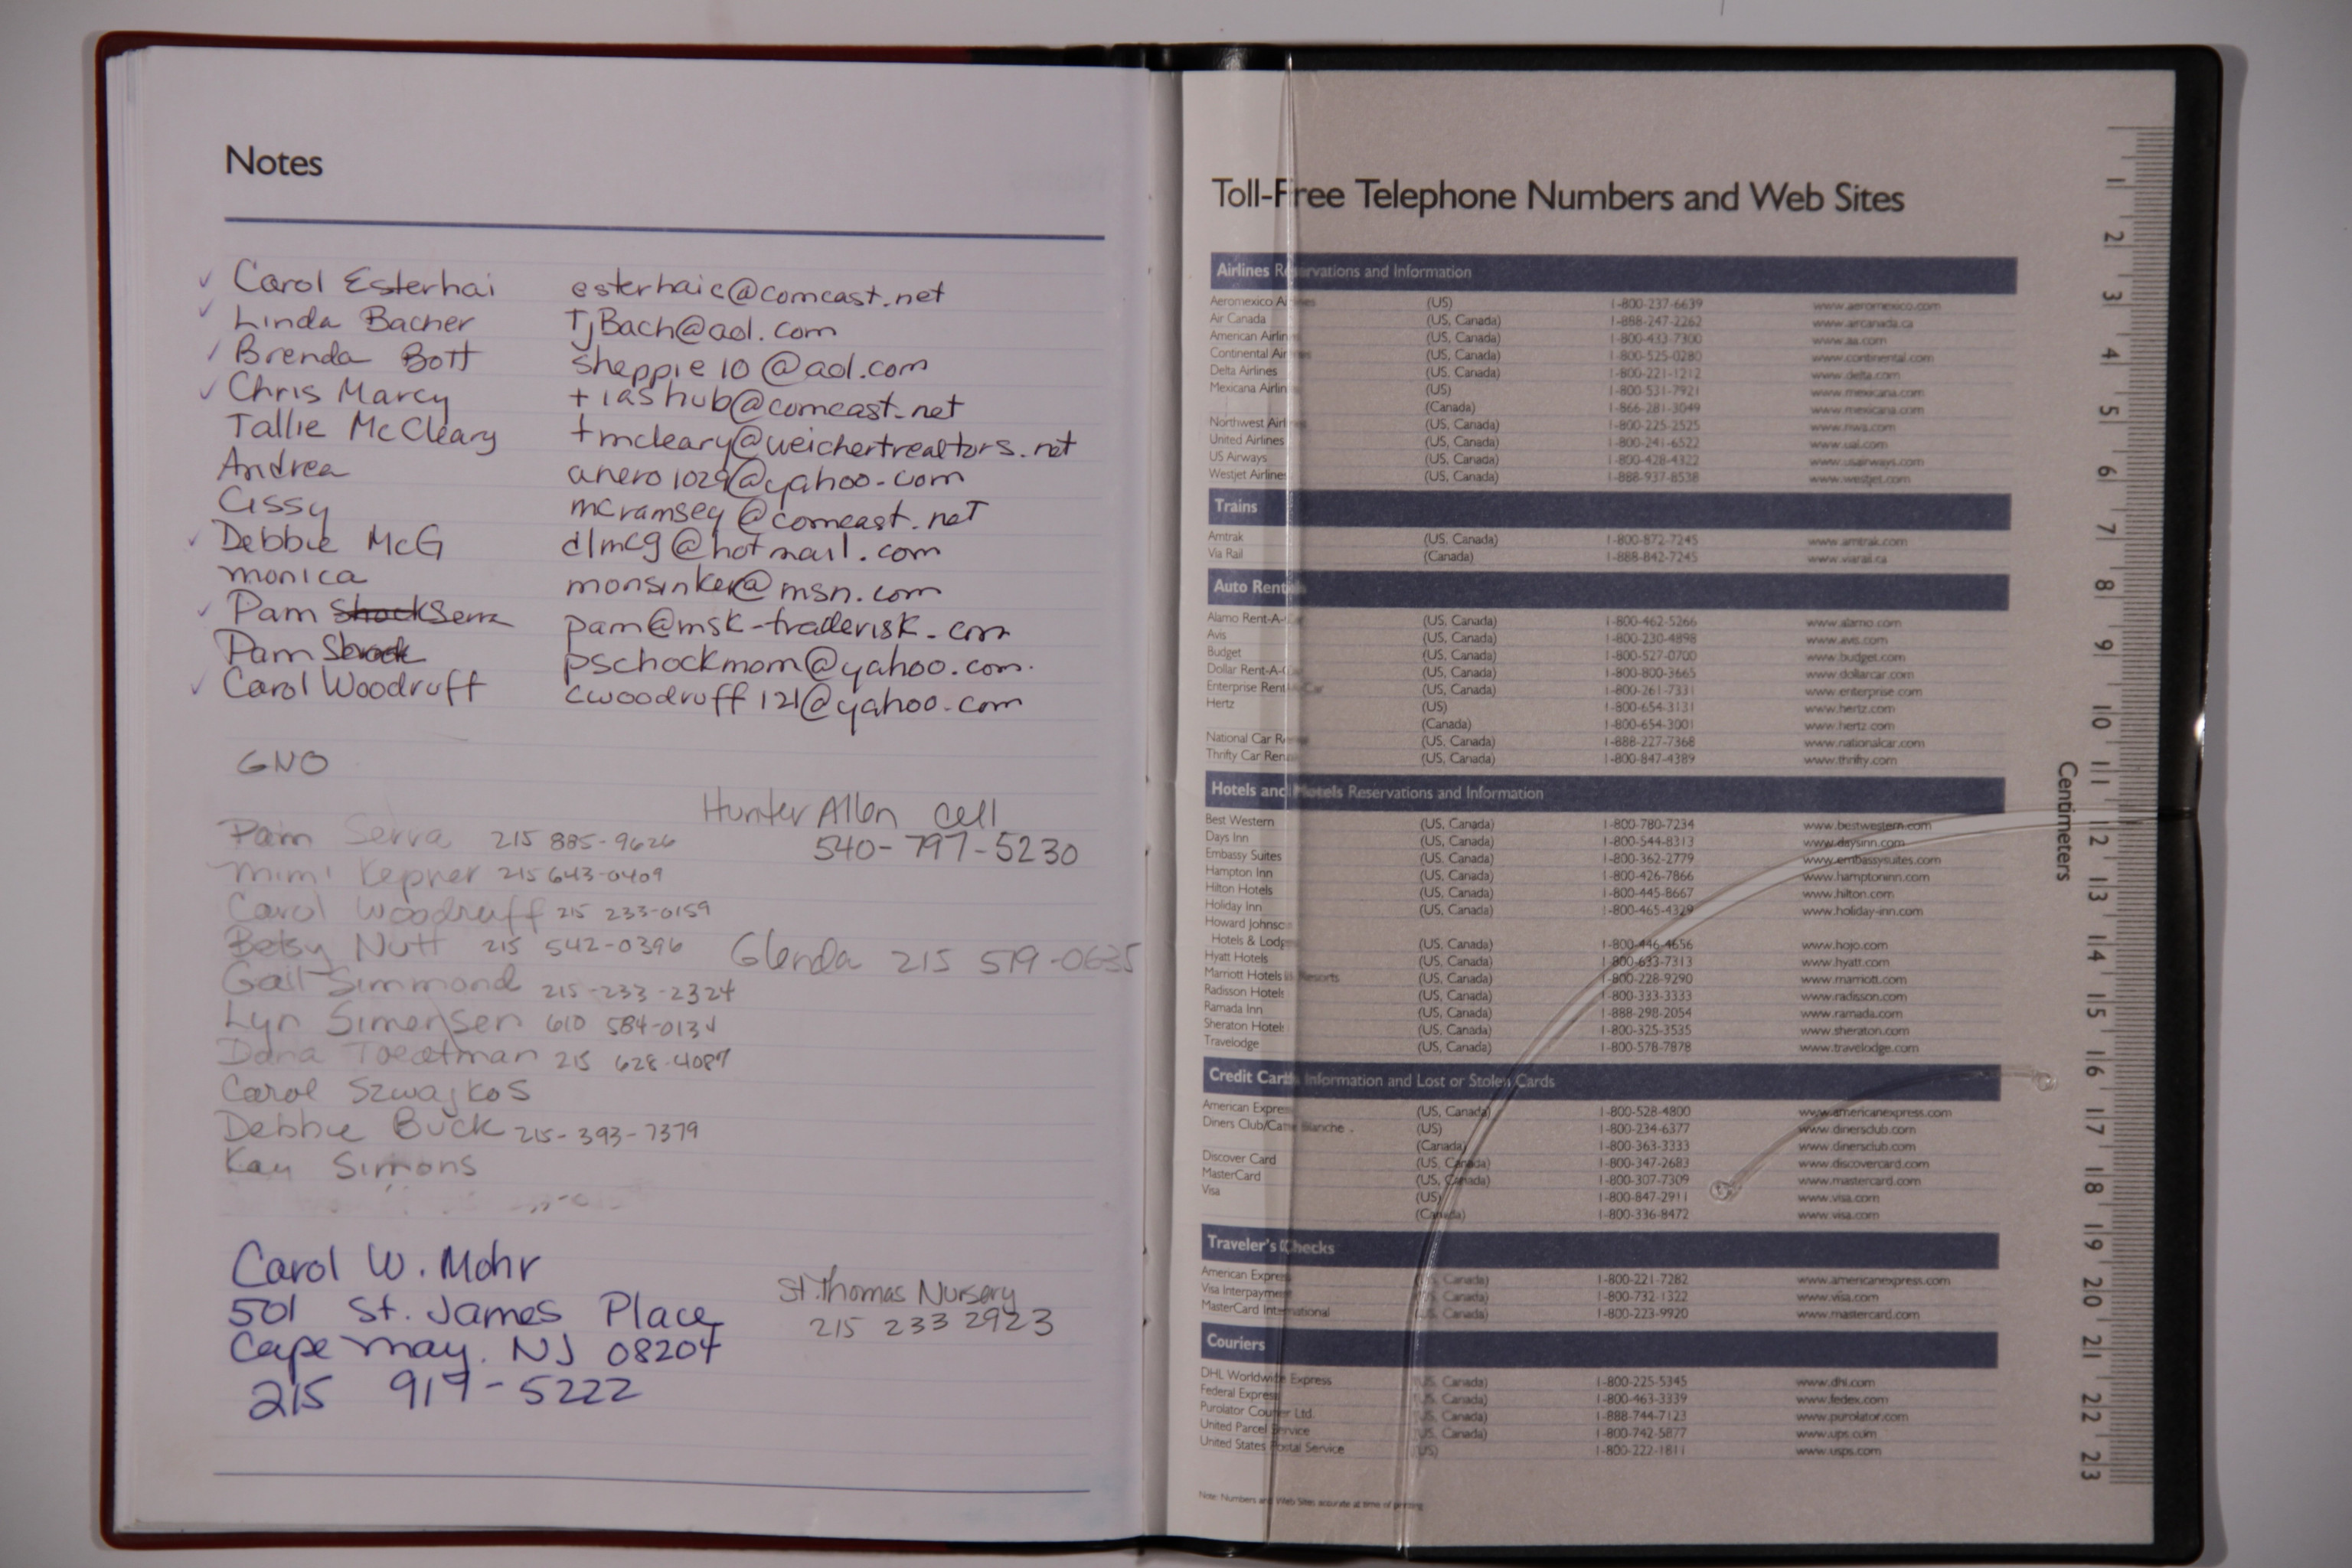 Notes
✓ Carol Esterhai esterhaic@comcast.net
✓ Linda Bacher TjBach@aol.com
✓ Brenda Bott sheppie10@aol.com
✓ Chris Marcy tiashub@comcast.net
Tallie McCleary tmcleary@weichertrealtors.net
Andrea anero1029@yahoo.com
Cissy mcramsey@comcast.net
✓ Debbie McG dlmcg@hotmail.com
monica monsinker@msn.com
✓ Pam Shock Serra pam@msk-traderisk.com
Pam pschockmom@yahoo.com.
✓ Carol Woodruff cwoodruff121@yahoo.com
GNO
Hunter Allen cell
540-797-5230
Pam Serra 215 885-9626
Mimi Kepner 215 643-0409
Carol Woodruff 215 233-0159
Betsy Nutt 215 542-0396
Glenda 215 519-0635
Gail Simmond 215-233-2324
Lyn Simensen 610 584-0134
Dana 215 628-4087
Carol Szwajkos
Debbie Buck 215-393-7379
Kay Simons
Carol W. Mohr
501 St. James Place
Cape May, NJ 08204
215 919-5222
St. Thomas Nursery
215 233 2923
Toll-Free Telephone Numbers and Web Sites
Airlines Reservations and Information
Aeromexico Airlines (US) 1-800-237-6639 www.aeromexico.com
Air Canada (US, Canada) 1-888-247-2262 www.aircanada.ca
American Airlines (US, Canada) 1-800-433-7300 www.aa.com
Continental Airlines (US, Canada) 1-800-525-0280 www.continental.com
Delta Airlines (US, Canada) 1-800-221-1212 www.delta.com
Mexicana Airlines (US) 1-800-531-7921 www.mexicana.com
(Canada) 1-866-281-3049 www.mexicana.com
Northwest Airlines (US, Canada) 1-800-225-2525 www.nwa.com
United Airlines (US, Canada) 1-800-241-6522 www.ual.com
US Airways (US, Canada) 1-800-428-4322 www.usairways.com
Westjet Airlines (US, Canada) 1-888-937-8538 www.westjet.com
Trains
Amtrak (US, Canada) 1-800-872-7245 www.amtrak.com
Via Rail (Canada) 1-888-842-7245 www.viarail.ca
Auto Rentals
Alamo Rent-A-Car (US, Canada) 1-800-462-5266 www.alamo.com
Avis (US, Canada) 1-800-230-4898 www.avis.com
Budget (US, Canada) 1-800-527-0700 www.budget.com
Dollar Rent-A-Car (US, Canada) 1-800-800-3665 www.dollarcar.com
Enterprise Rent-A-Car (US, Canada) 1-800-261-7331 www.enterprise.com
Hertz (US) 1-800-654-3131 www.hertz.com
(Canada) 1-800-654-3001 www.hertz.com
National Car Rental (US, Canada) 1-888-227-7368 www.nationalcar.com
Thrifty Car Rental (US, Canada) 1-800-847-4389 www.thrifty.com
Hotels and Motels Reservations and Information
Best Western (US, Canada) 1-800-780-7234 www.bestwestern.com
Days Inn (US, Canada) 1-800-544-8313 www.daysinn.com
Embassy Suites (US, Canada) 1-800-362-2779 www.embassysuites.com
Hampton Inn (US, Canada) 1-800-426-7866 www.hamptoninn.com
Hilton Hotels (US, Canada) 1-800-445-8667 www.hilton.com
Holiday Inn (US, Canada) 1-800-465-4329 www.holiday-inn.com
Howard Johnson
Hotels & Lodges (US, Canada) 1-800-446-4656 www.hojo.com
Hyatt Hotels (US, Canada) 1-800-633-7313 www.hyatt.com
Marriott Hotels & Resorts (US, Canada) 1-800-228-9290 www.marriott.com
Radisson Hotels (US, Canada) 1-800-333-3333 www.radisson.com
Ramada Inn (US, Canada) 1-888-298-2054 www.ramada.com
Sheraton Hotels (US, Canada) 1-800-325-3535 www.sheraton.com
Travelodge (US, Canada) 1-800-578-7878 www.travelodge.com
Credit Cards Information and Lost or Stolen Cards
American Express (US, Canada) 1-800-528-4800 www.americanexpress.com
Diners Club/Carte Blanche (US) 1-800-234-6377 www.dinersclub.com
(Canada) 1-800-363-3333 www.dinersclub.com
Discover Card (US, Canada) 1-800-347-2683 www.discovercard.com
MasterCard (US, Canada) 1-800-307-7309 www.mastercard.com
Visa (US) 1-800-847-2911 www.visa.com
(Canada) 1-800-336-8472 www.visa.com
Traveler's Checks
American Express (US, Canada) 1-800-221-7282 www.americanexpress.com
Visa Interpayment (US, Canada) 1-800-732-1322 www.visa.com
MasterCard International (US, Canada) 1-800-223-9920 www.mastercard.com
Couriers
DHL Worldwide Express (US, Canada) 1-800-225-5345 www.dhl.com
Federal Express (US, Canada) 1-800-463-3339 www.fedex.com
Purolator Courier Ltd. (US, Canada) 1-888-744-7123 www.purolator.com
United Parcel Service (US, Canada) 1-800-742-5877 www.ups.com
United States Postal Service (US) 1-800-222-1811 www.usps.com
Note: Numbers and Web Sites accurate at time of printing
Centimeters
1 2 3 4 5 6 7 8 9 10 11 12 13 14 15 16 17 18 19 20 21 22 23